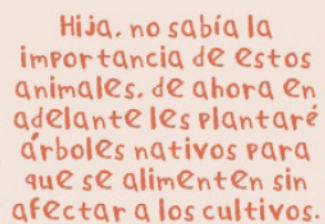 Hija. no sabía la
importancia de estos
animales. de ahora en
adelante les plantaré
árboles nativos para
que se alimenten sin
afectar a los cultivos.